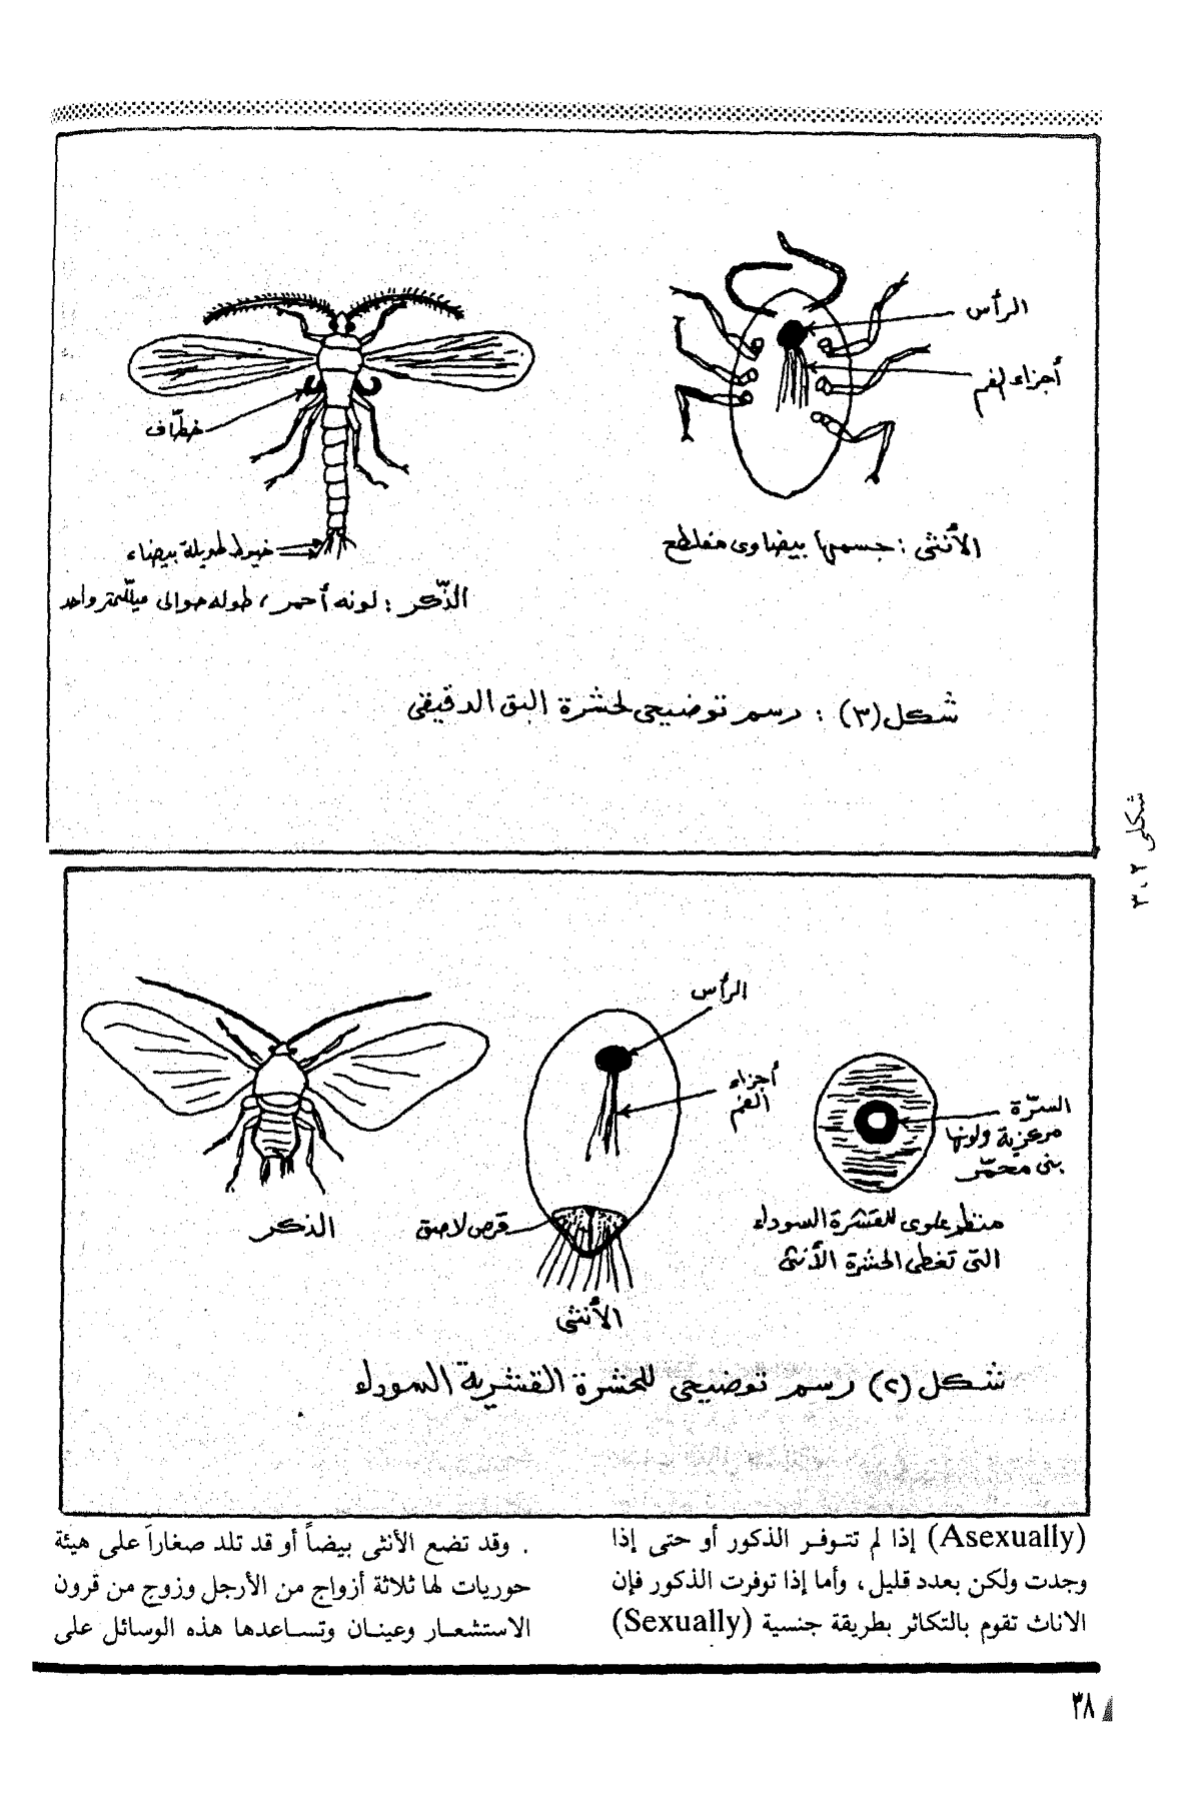 الرأس
أجزاء الفم
خطّاف
خيوط طويلة بيضاء
الأنثى : جسمها بيضاوى مفلطح
الذّكر : لونه أحمر ، طوله حوالى ميلّمتر واحد
شكل (٣) : رسم توضيحى لحشرة البق الدقيقى
شكلى ٢ ، ٣
الرأس
أجزاء
الفم
السرّة
مركزية ولونها
بنى محمّر
منظر علوى للقشرة السوداء
التى تغطى الحشرة الأنثى
قرص لاصق
الأنثى
الذكر
شكل (٢) رسم توضيحى للحشرة القشرية السوداء
(Asexually) إذا لم تتوفر الذكور أو حتى إذا
وجدت ولكن بعدد قليل ، وأما إذا توفرت الذكور فإن
الاناث تقوم بالتكاثر بطريقة جنسية (Sexually)
. وقد تضع الأنثى بيضاً أو قد تلد صغاراً على هيئة
حوريات لها ثلاثة أزواج من الأرجل وزوج من قرون
الاستشعار وعينان وتساعدها هذه الوسائل على
٣٨